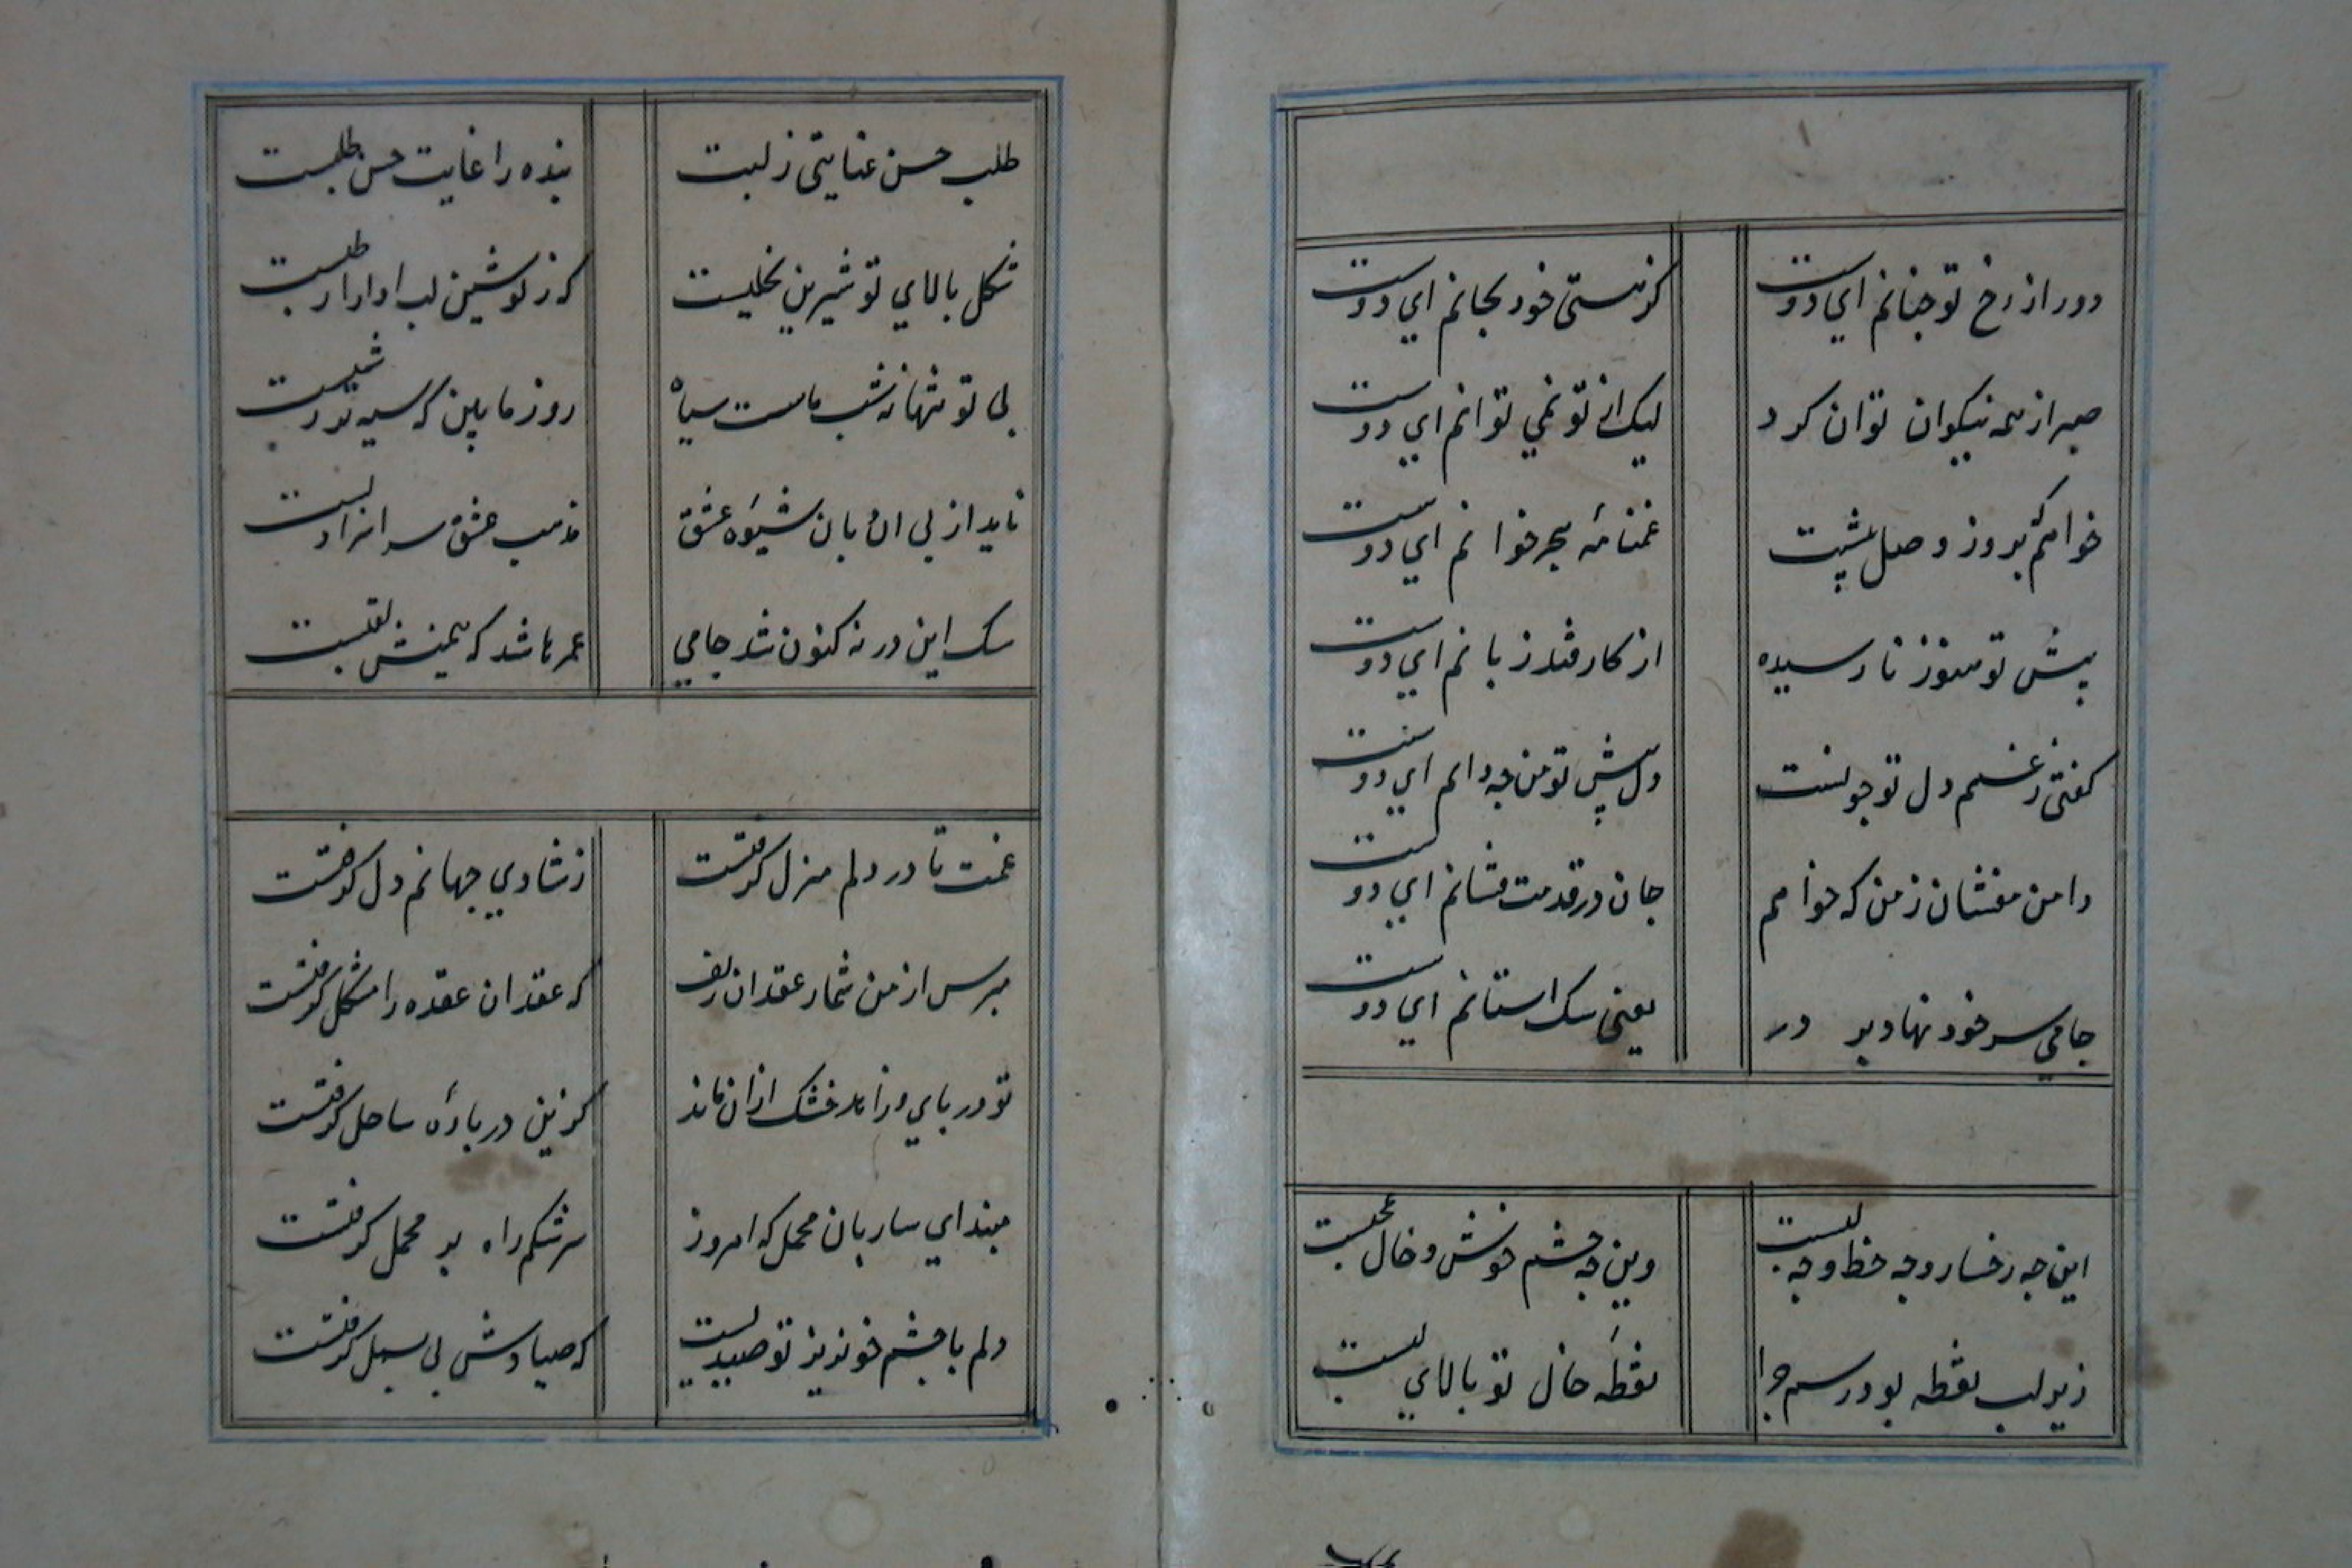 دور از رخ تو چنانم ای دوست
کز هستی خود بجانم ای دوست
صبر از همه نیکوان توان کرد
لیک از تو نمی توانم ای دوست
خواهم که بروز وصل پیشت
غمنامهٔ هجر خوانم ای دوست
پیش تو هنوز نارسیده
از کار فتد زبانم ای دوست
کفتی ز غم دل تو چونست
دل پیش تو من چه دانم ای دوست
دامن مفشان ز من که خواهم
جان در قدمت فشانم ای دوست
جامی سر خود نهاد بر در
یعنی سک استانم ای دوست
این چه رخسار و چه خط و چه لبست
وین چه چشم خوش و خال عجبست
زیر لب نقطه بود رسم چرا
نقطهٔ خال تو بالای لبست
طلب حسن عنایتی ز لبت
بنده را غایت حسن طلبست
شکل بالای تو شیرین نخلیست
که ز نوشین لب او را رطبست
بی تو تنها نه شب ماست سیاه
روز ما بین که سیه تر ز شبست
ناید از بی ادبان شیوهٔ عشق
مذهب عشق سراسر ادبست
سک این در نه کنون شد جامی
عمرها شد که همینش لقبست
غمت تا در دلم منزل کرفتست
ز شادی جهانم دل کرفتست
مپرس از من شمار عقد ان زلف
که عقد ان عقده را مشکل کرفتست
تو دریای و زاهد خشک ازان ماند
کزین دریا ره ساحل کرفتست
مبند ای ساربان محمل که امروز
سرشکم راه بر محمل کرفتست
دلم با چشم خونریز تو صیدیست
که صیادش پی بسمل کرفتست